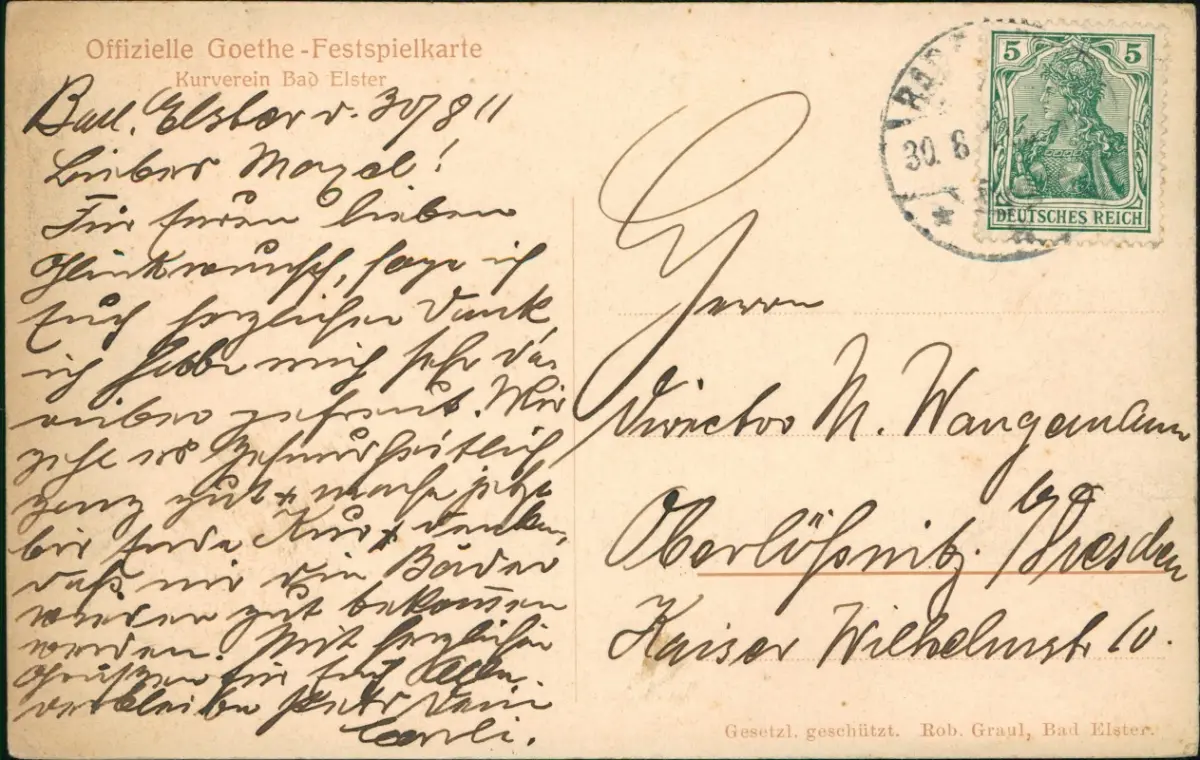 Offizielle Goethe-Festspielkarte
Kurverein Bad Elster
Bad. Elster d. 30/8 11
Lieber Maxel!
Für Euren lieben
Glückwunsch, sage ich
Euch herzlichen Dank,
ich habe mich sehr da-
rüber gefreut. Mir
geht es gesundheitlich
ganz gut + mache jetzt
hier Kur +
daß mir die Bäder
wieder gut bekommen
werden. Mit herzlichen
Grüßen für Euch Alle.
verbleibe stets Dein
Carli.
30. 8
5 5
DEUTSCHES REICH
Herrn
Director M. Wangemann
Oberlößnitz. b/Dresden
Kaiser Wilhelmstr 10.
Gesetzl. geschützt. Rob. Graul, Bad Elster.